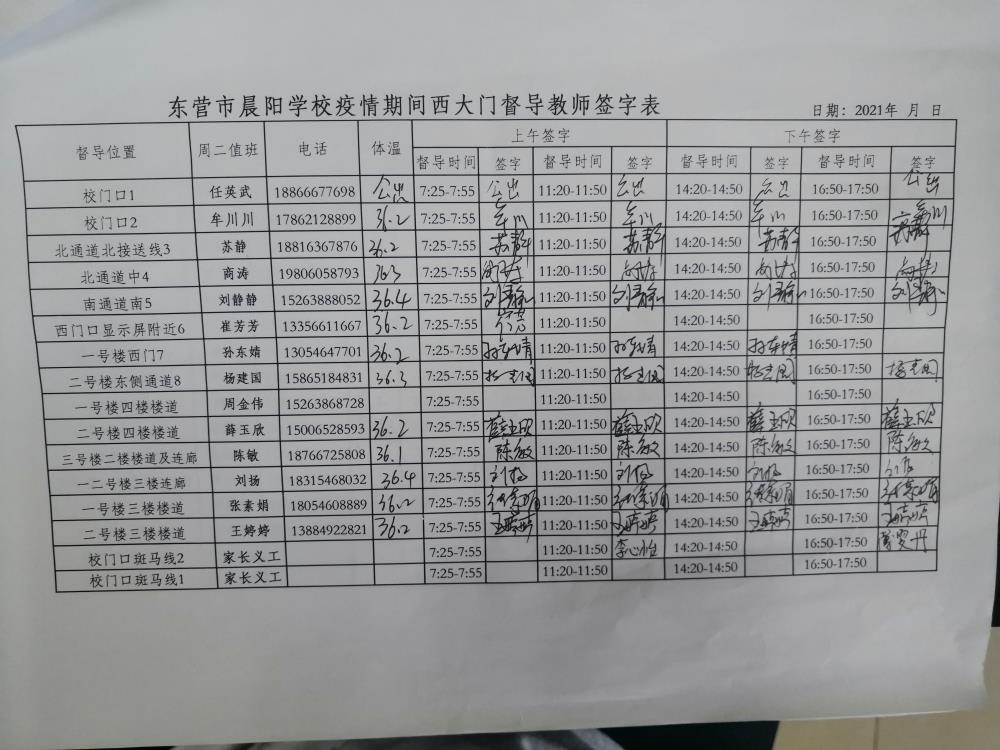 东营市晨阳学校疫情期间西大门督导教师签字表
日期：2021年 月 日
督导位置 周二值班 电话 体温 上午签字 下午签字
督导时间 签字 督导时间 签字 督导时间 签字 督导时间 签字
校门口1 任英武 18866677698 公出 7:25-7:55 公出 11:20-11:50 公出 14:20-14:50 公出 16:50-17:50 公出
校门口2 牟川川 17862128899 36.2 7:25-7:55 牟川 11:20-11:50 牟川 14:20-14:50 牟川 16:50-17:50 牟川
北通道北接送线3 苏静 18816367876 36.2 7:25-7:55 苏静 11:20-11:50 苏静 14:20-14:50 苏静 16:50-17:50 苏静
北通道中4 商涛 19806058793 36.3 7:25-7:55 商涛 11:20-11:50 商涛 14:20-14:50 商涛 16:50-17:50 商涛
南通道南5 刘静静 15263888052 36.4 7:25-7:55 刘静静 11:20-11:50 刘静静 14:20-14:50 刘静静 16:50-17:50 刘静静
西门口显示屏附近6 崔芳芳 13356611667 36.2 7:25-7:55 11:20-11:50 14:20-14:50 16:50-17:50
一号楼西门7 孙东婧 13054647701 36.2 7:25-7:55 孙东婧 11:20-11:50 孙东婧 14:20-14:50 孙东婧 16:50-17:50
二号楼东侧通道8 杨建国 15865184831 36.3 7:25-7:55 杨建国 11:20-11:50 杨建国 14:20-14:50 杨建国 16:50-17:50 杨建国
一号楼四楼楼道 周金伟 15263868728 7:25-7:55 11:20-11:50 14:20-14:50 16:50-17:50
二号楼四楼楼道 薛玉欣 15006528593 36.2 7:25-7:55 薛玉欣 11:20-11:50 薛玉欣 14:20-14:50 薛玉欣 16:50-17:50 薛玉欣
三号楼二楼楼道及连廊 陈敏 18766725808 36.1 7:25-7:55 陈敏 11:20-11:50 陈敏 14:20-14:50 陈敏 16:50-17:50 陈敏
一二号楼三楼连廊 刘扬 18315468032 36.4 7:25-7:55 刘扬 11:20-11:50 刘扬 14:20-14:50 刘扬 16:50-17:50 刘扬
一号楼三楼楼道 张素娟 18054608889 36.2 7:25-7:55 张素娟 11:20-11:50 张素娟 14:20-14:50 张素娟 16:50-17:50 张素娟
二号楼三楼楼道 王婷婷 13884922821 36.2 7:25-7:55 王婷婷 11:20-11:50 王婷婷 14:20-14:50 王婷婷 16:50-17:50 王婷婷
校门口斑马线2 家长义工 7:25-7:55 11:20-11:50 李心怡 14:20-14:50 16:50-17:50
校门口斑马线1 家长义工 7:25-7:55 11:20-11:50 14:20-14:50 16:50-17:50